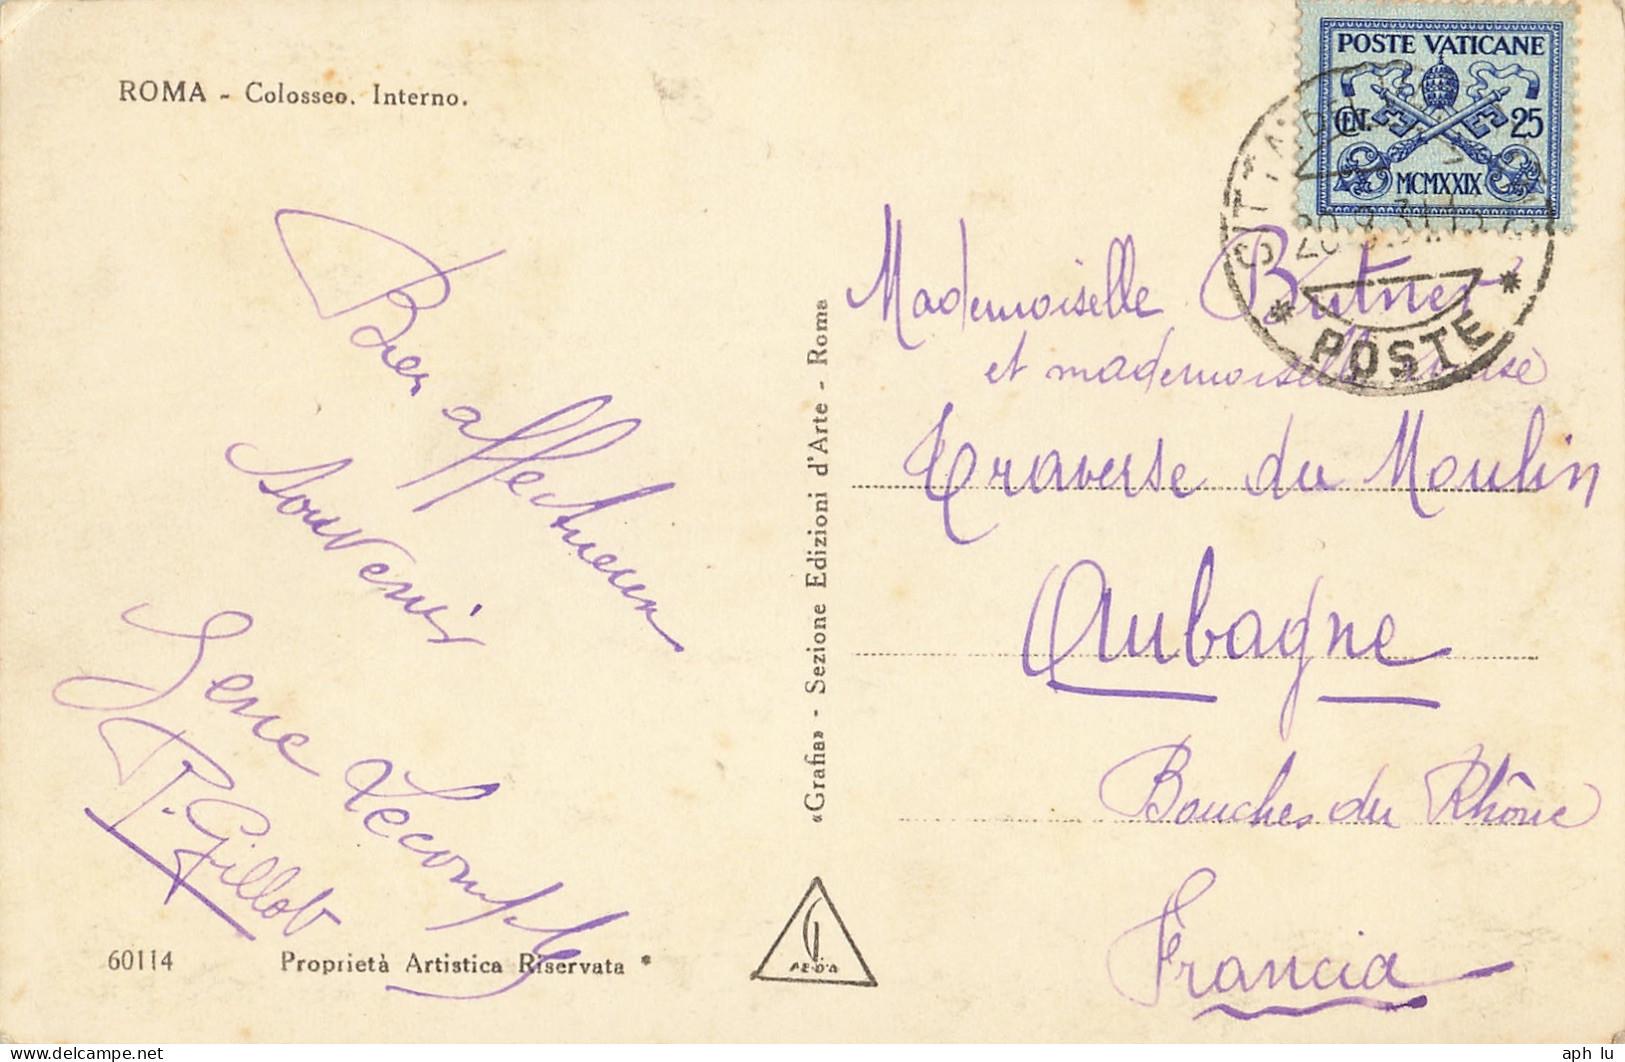 ROMA - Colosseo. Interno.
POSTE VATICANE
CENT. 25
MCMXXIX
POSTE
Bien affectueux
souvenir
Lecomte
P. Gillot
60114 Proprietà Artistica Riservata *
«Grafia» - Sezione Edizioni d'Arte - Roma
Mademoiselle Butner
et mademoiselle Louise
Traverse du Moulin
Aubagne
Bouches du Rhône
Francia
delcampe.net
aph_lu